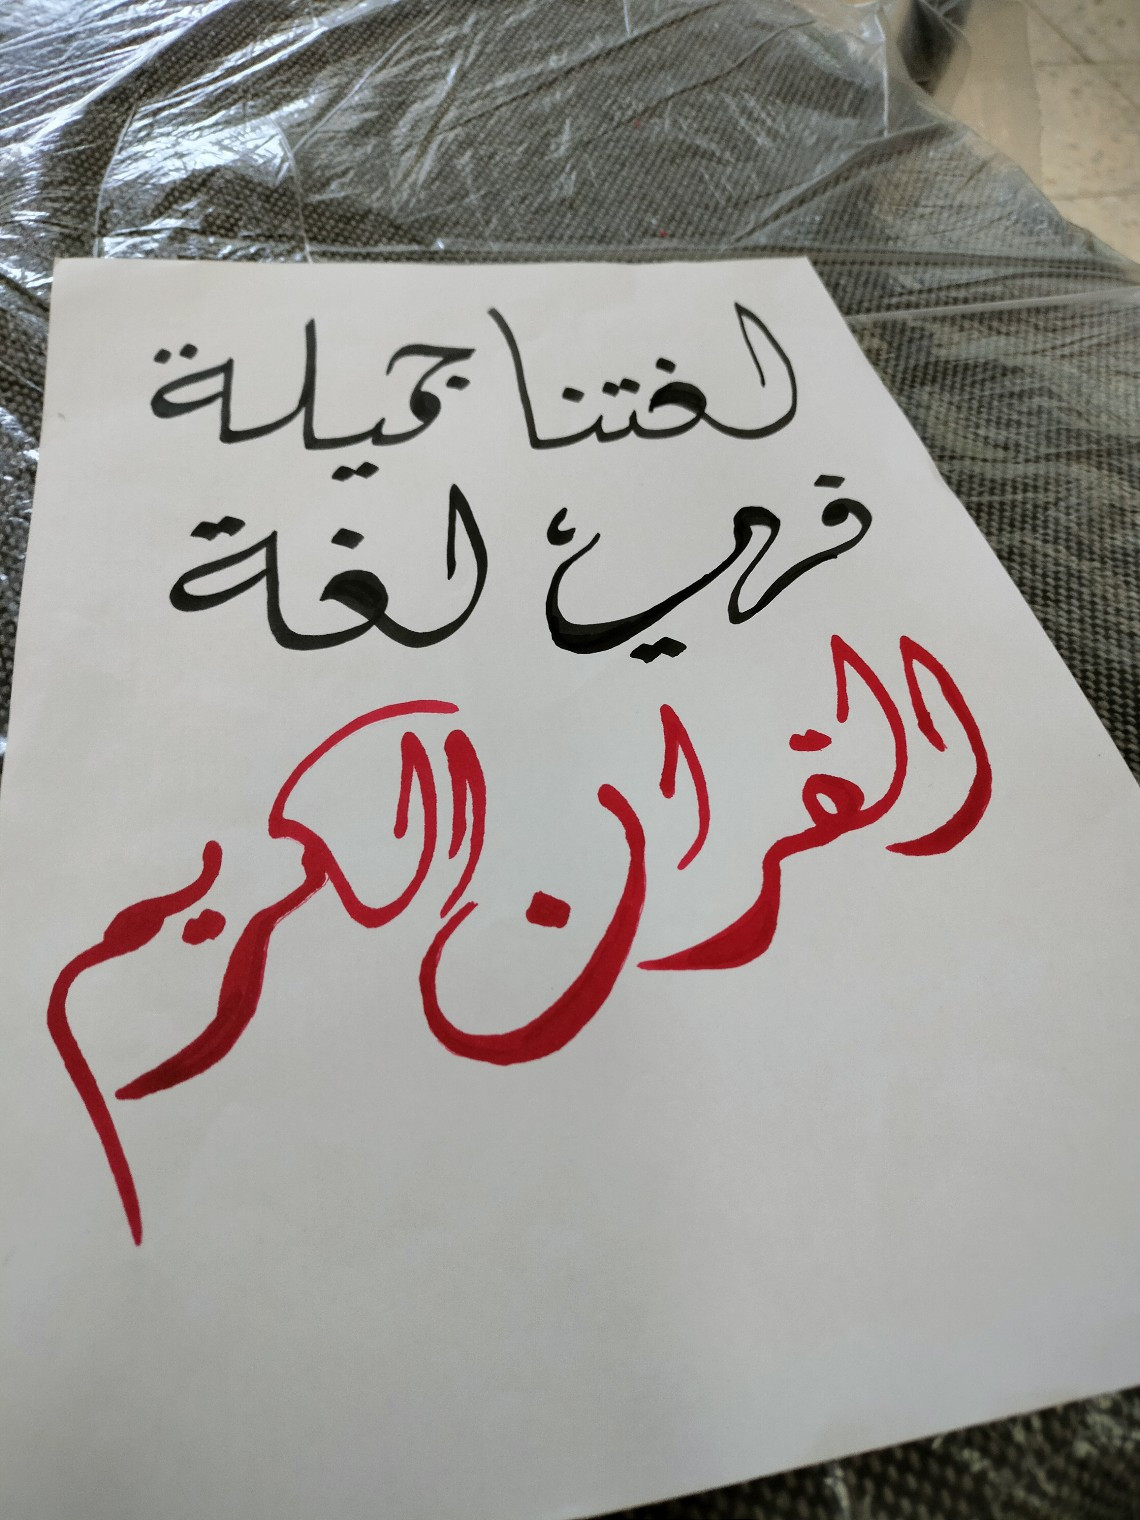 لغتنا جميلة
فهي لغة
القران الكريم